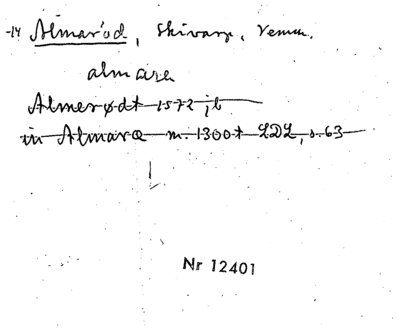 -14 Almaröd, Skivarp, Vemm.
almare
Almerødt 1572 jb
in Almare m. 1300t LDL, s. 63
Nr 12401